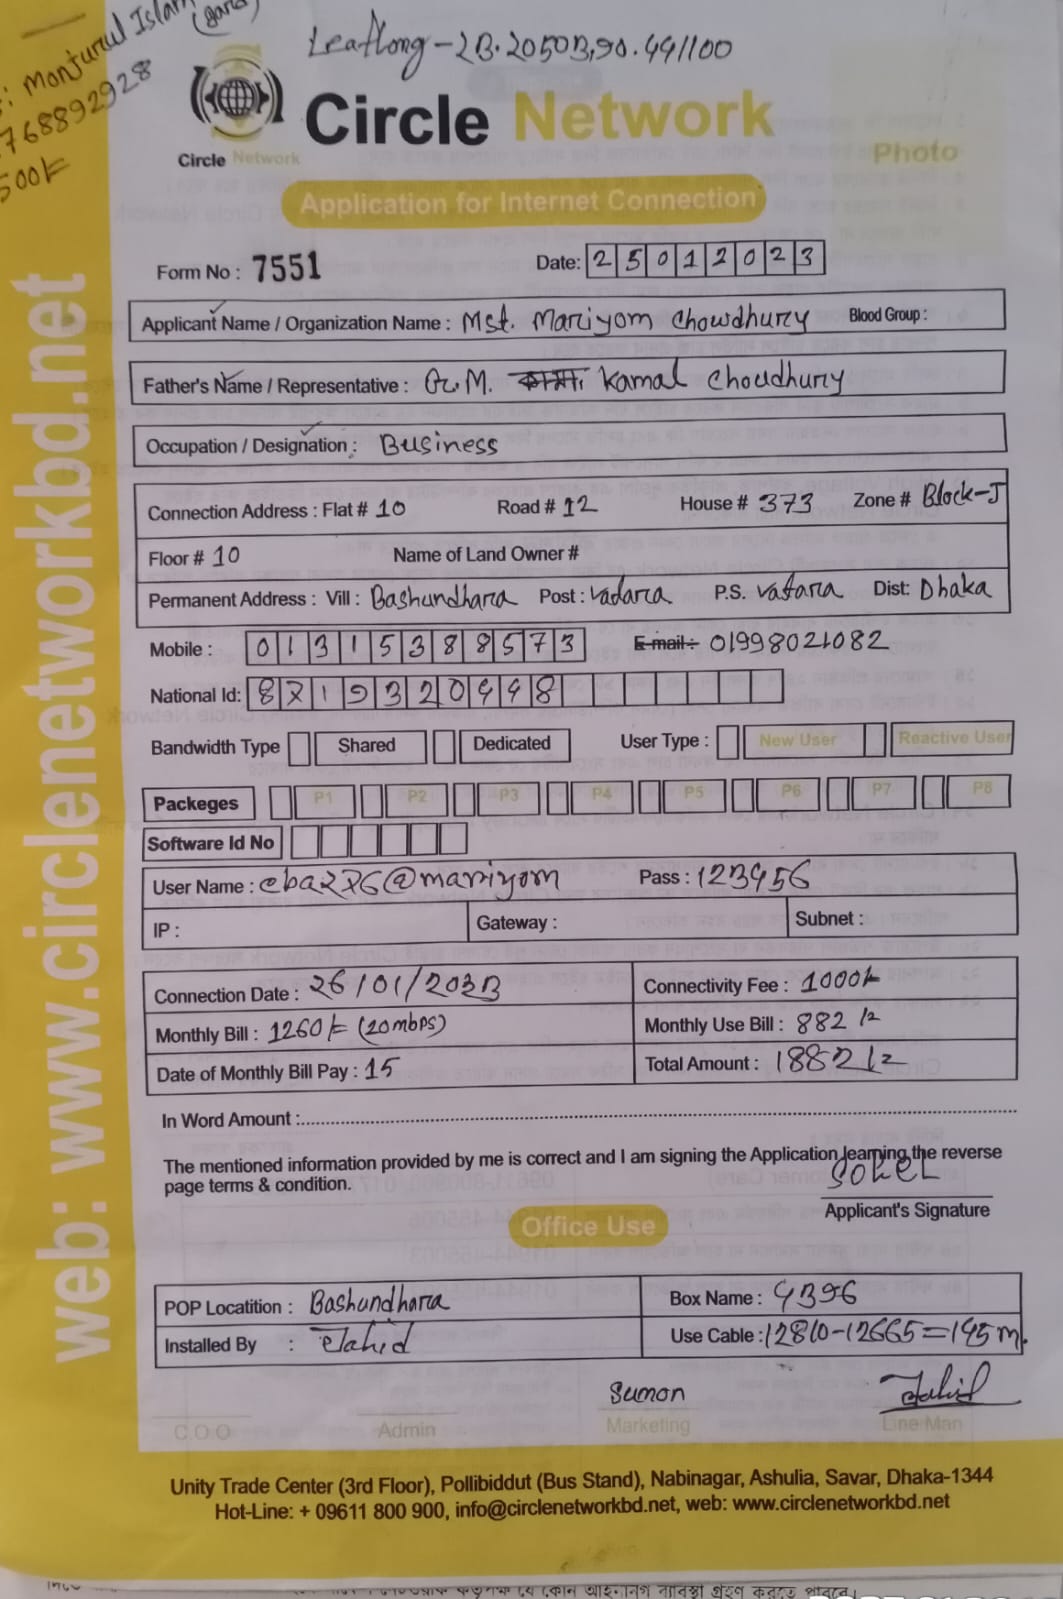 : Monjurul Islam
(gard)
768892928
500/=
Leaflong-2B.2050B,90.49/100
Circle Network
Circle Network
Photo
Application for Internet Connection
Form No : 7551
Date: 25012023
Applicant Name / Organization Name : Mst. Mariyom Chowdhury Blood Group :
Father's Name / Representative : G.M. Kamal Choudhury
Occupation / Designation : Business
Connection Address : Flat # 10 Road # 12 House # 373 Zone # Block-J
Floor # 10 Name of Land Owner #
Permanent Address : Vill : Bashundhara Post : Vadara P.S. Vatara Dist: Dhaka
Mobile : 01315388573 E-mail : 01998021082
National Id: 8719320448
Bandwidth Type Shared Dedicated User Type : New User Reactive User
Packeges P1 P2 P3 P4 P5 P6 P7 P8
Software Id No
User Name : cba276@mariyom Pass : 123456
IP : Gateway : Subnet :
Connection Date : 26/01/2023 Connectivity Fee : 1000/=
Monthly Bill : 1260/= (20mbps) Monthly Use Bill : 882/=
Date of Monthly Bill Pay : 15 Total Amount : 1882/=
In Word Amount :
The mentioned information provided by me is correct and I am signing the Application learning the reverse
page terms & condition.
SOHEL
Applicant's Signature
Office Use
POP Locatition : Bashundhara Box Name : 4396
Installed By : Jahid Use Cable : 12810-12665=145m.
Sumon Jahid
C.O.O Admin Marketing Line Man
Unity Trade Center (3rd Floor), Pollibiddut (Bus Stand), Nabinagar, Ashulia, Savar, Dhaka-1344
Hot-Line: + 09611 800 900, info@circlenetworkbd.net, web: www.circlenetworkbd.net
web: www.circlenetworkbd.net